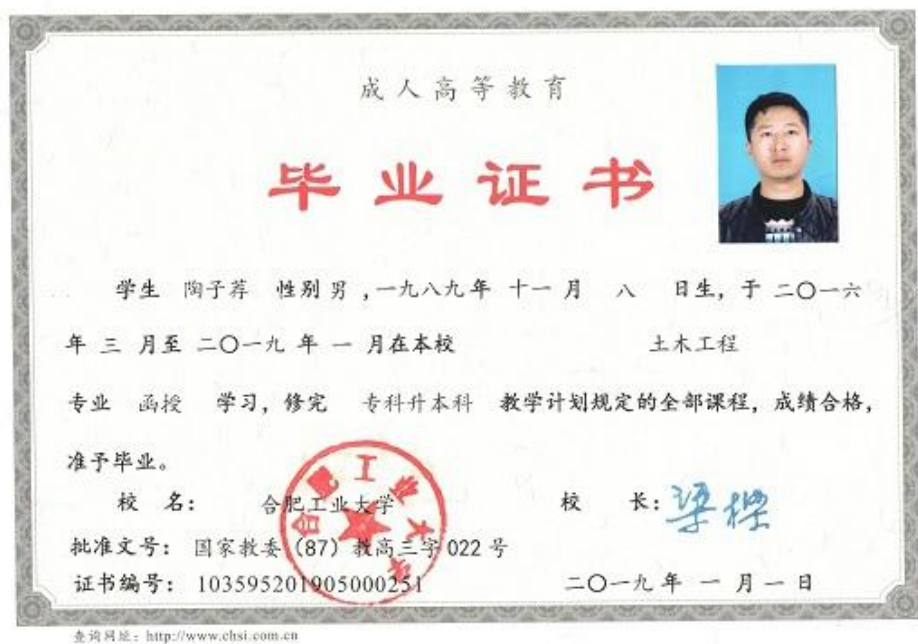 成人高等教育
毕业证书
学生 陶子荐 性别 男 ,一九八九年 十一 月 八 日生, 于 二〇一六
年 三 月至 二〇一九 年 一 月在本校 土木工程
专业 函授 学习, 修完 专科升本科 教学计划规定的全部课程, 成绩合格,
准予毕业。
校 名: 合肥工业大学 校 长: 梁樑
合肥工业大学
批准文号: 国家教委 (87) 教高三字 022 号
证书编号: 103595201905000251 二〇一九 年 一 月 一 日
查询网址: http://www.chsi.com.cn